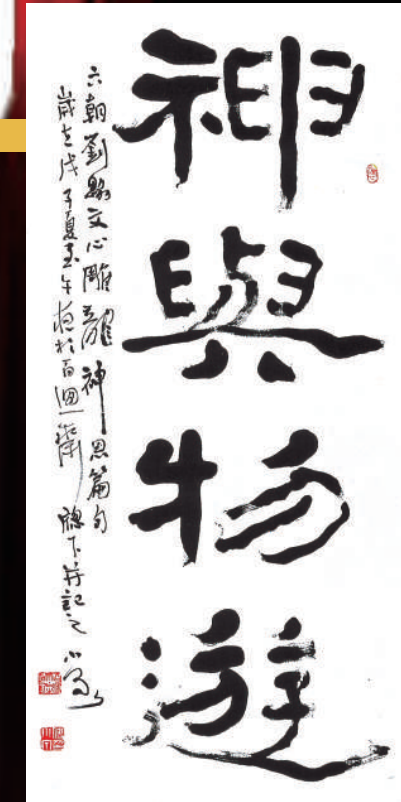 神與物遊
六朝劉勰文心雕龍神思篇句
歲在戊子夏至午後於百迴齋牕下并記之